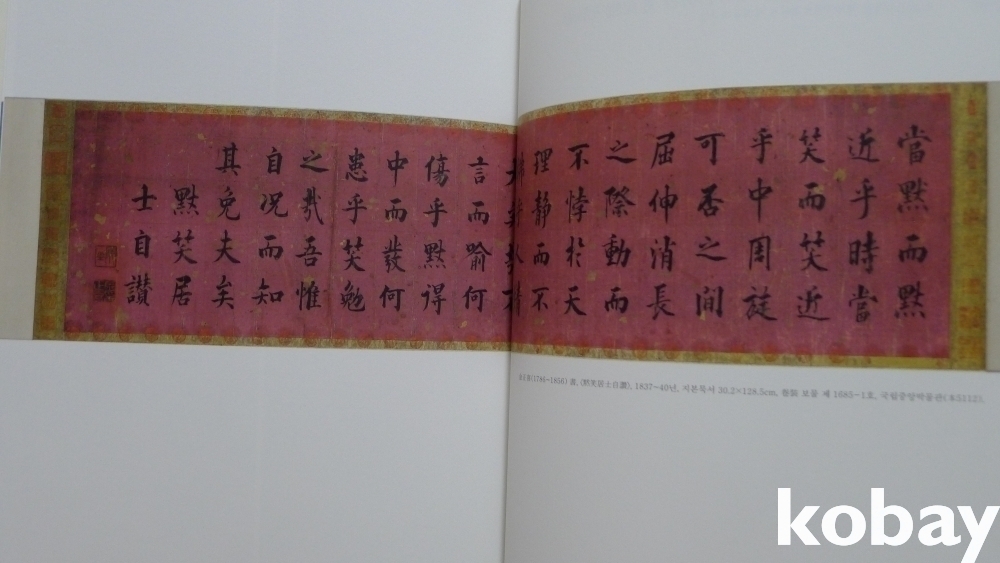 當默而默
近乎時當
笑而笑近
乎中周旋
可否之間
屈伸消長
之際動而
不悖於天
理靜而不
言而喻何
傷乎默得
中而發何
患乎笑勉
之哉吾惟
自况而知
其免夫矣
默笑居
士自讚
(1786-1856) 書, 〈默笑居士自讚〉, 1837-40년, 지본묵서 30.2×128.5cm, 보물 제 1685-1호, 국립중앙박물관(本5112).
kobay